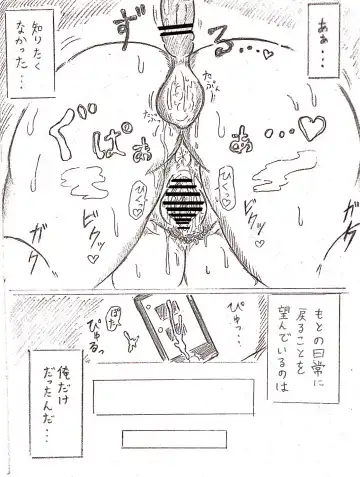 ああ…
ずる…♡
知りたく
なかった…
たぷん
ぐぱぁぁ…♡
ひくっ♡
ひくっ♡
ビクッ♡
ビクッ♡
ガク
ガケ
もとの日常に
戻ることを
望んでいるのは
ぴゅっ…
ぴゅるっ
俺だけ
だったんだ…